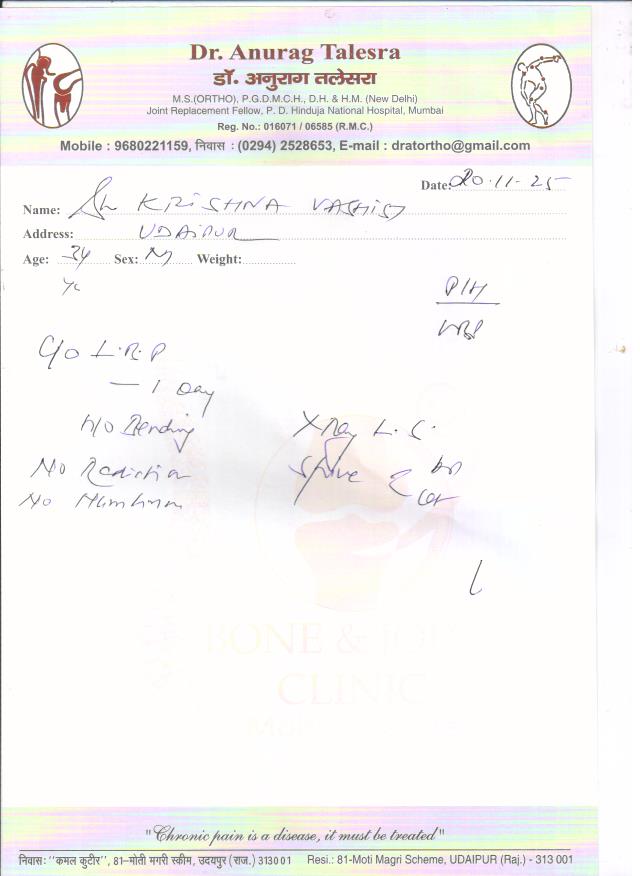 Dr. Anurag Talesra
डॉ. अनुराग तलेसरा
M.S.(ORTHO), P.G.D.M.C.H., D.H. & H.M. (New Delhi)
Joint Replacement Fellow, P. D. Hinduja National Hospital, Mumbai
Reg. No.: 016071 / 06585 (R.M.C.)
Mobile : 9680221159, निवास : (0294) 2528653, E-mail : dratortho@gmail.com
Date: 20.11.25
Name: Sh KRISHNA VASHIST
Address: UDAIPUR
Age: 34 Sex: M Weight:
P/H
C/O L.B.P
— 1 Day
h/o Bending
X Ray L.S.
No Radiation
Spine
AP
Lat
No Numbness
BONE & JOI
CLINIC
"Chronic pain is a disease, it must be treated"
निवास: "कमल कुटीर", 81–मोती मगरी स्कीम, उदयपुर (राज.) 313001 Resi.: 81-Moti Magri Scheme, UDAIPUR (Raj.) - 313 001